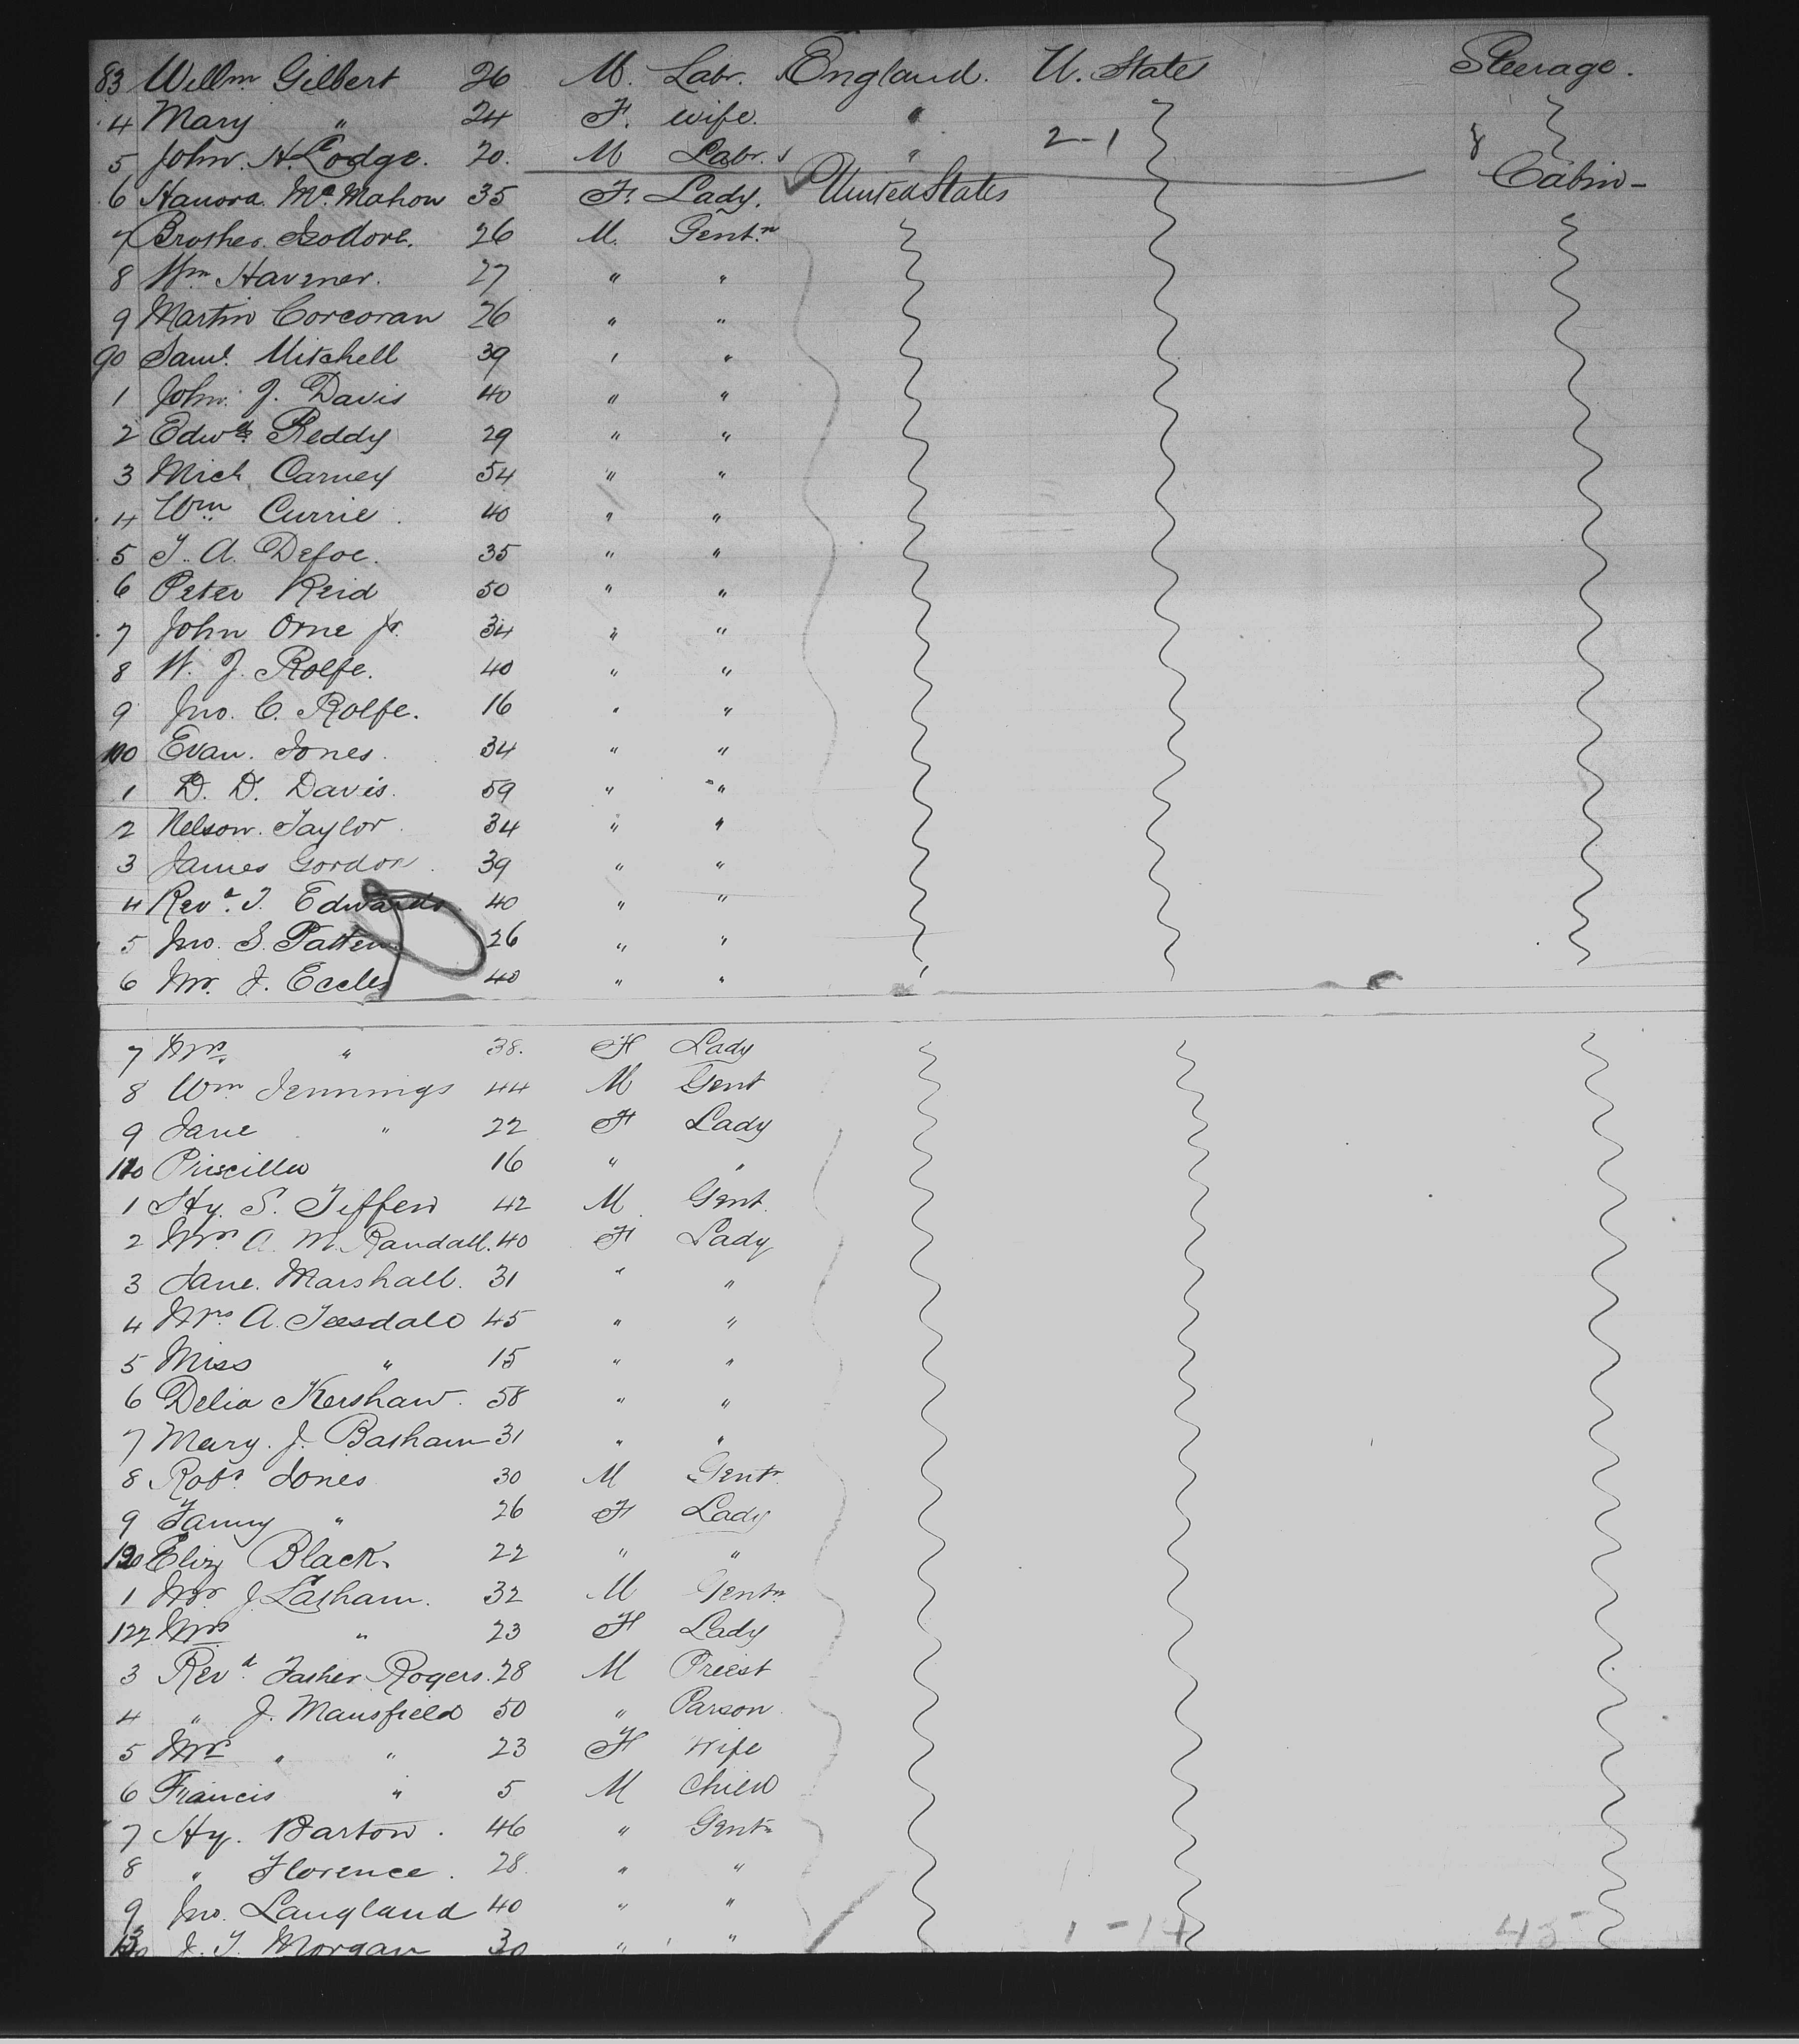 83 Willm. Gilbert 26 M. Labr. England. U. States Steerage.
4 Mary " 24 F. wife. "
5 John. H. Lodge. 20. M Labr. " 2-1 8
6 Hanora. Mc.Mahon 35 F. Lady. United States Cabin-
7 Brother. Isodore. 26 M. Gentn
8 Wm Havener. 27 " "
9 Martin Corcoran 26 " "
90 Saml. Mitchell 39 " "
1 John. J. Davis 40 " "
2 Edwd. Reddy 29 " "
3 Mich. Carney 54 " "
4 Wm Currie. 40 " "
5 T. A. Defoe. 35 " "
6 Peter Reid 50 " "
7 John Orne Jr. 34 " "
8 W. J. Rolfe. 40 " "
9 Jno. C. Rolfe. 16 " "
100 Evan. Jones. 34 " "
1 D. D. Davis. 59 " "
2 Nelson. Taylor. 34 " "
3 James Gordon. 39 " "
4 Revd. T. Edwards 40 " "
5 Jno. S. Patten 26 " "
6 Mr. J. Eccles 40 " "
7 Mrs. " 38. F Lady
8 Wm Jennings 44 M Gent
9 Jane " 22 F Lady
110 Priscilla 16 " "
1 Hy. S. Tiffen 42 M Gent.
2 Mrs A. M. Randall. 40 F Lady
3 Jane. Marshall. 31 " "
4 Mrs. A. Teesdale 45 " "
5 Miss " 15 " "
6 Delia Kershaw. 58 " "
7 Mary. J. Basham 31 " "
8 Robt Jones 30 M Gentn
9 Fanny " 26 F Lady
120 Eliz Black. 22 " "
1 Mr J. Latham. 32 M Gentn
122 Mrs " 23 F Lady
3 Revd. Father Rogers. 28 M Priest
4 " J. Mansfield 50 " Parson
5 Mrs " " 23 F Wife
6 Francis " 5 M Child
7 Hy. Barton. 46 " Gentn
8 " Florence. 28. " "
9 Jno. Langland 40 " "
130 J. T. Morgan 30 " " 1-14 45